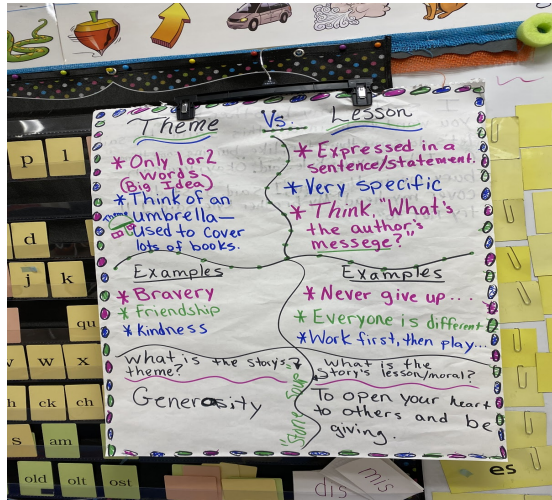 Theme Vs. Lesson
* Only 1 or 2
words
(Big Idea)
* Think of an
umbrella—
used to cover
lots of books.
Theme
* Expressed in a
sentence/statement.
* Very specific
* Think, "What's
the author's
messege?"
Examples
* Bravery
* Friendship
* Kindness
Examples
* Never give up...
* Everyone is different
* Work first, then play...
What is the story's
theme?
Generosity
"Stone Soup"
What is the
story's lesson/moral?
To open your heart
to others and be
giving.
p l
d
j k
qu
w x
h ck ch
s am
old olt ost
dis mis
es